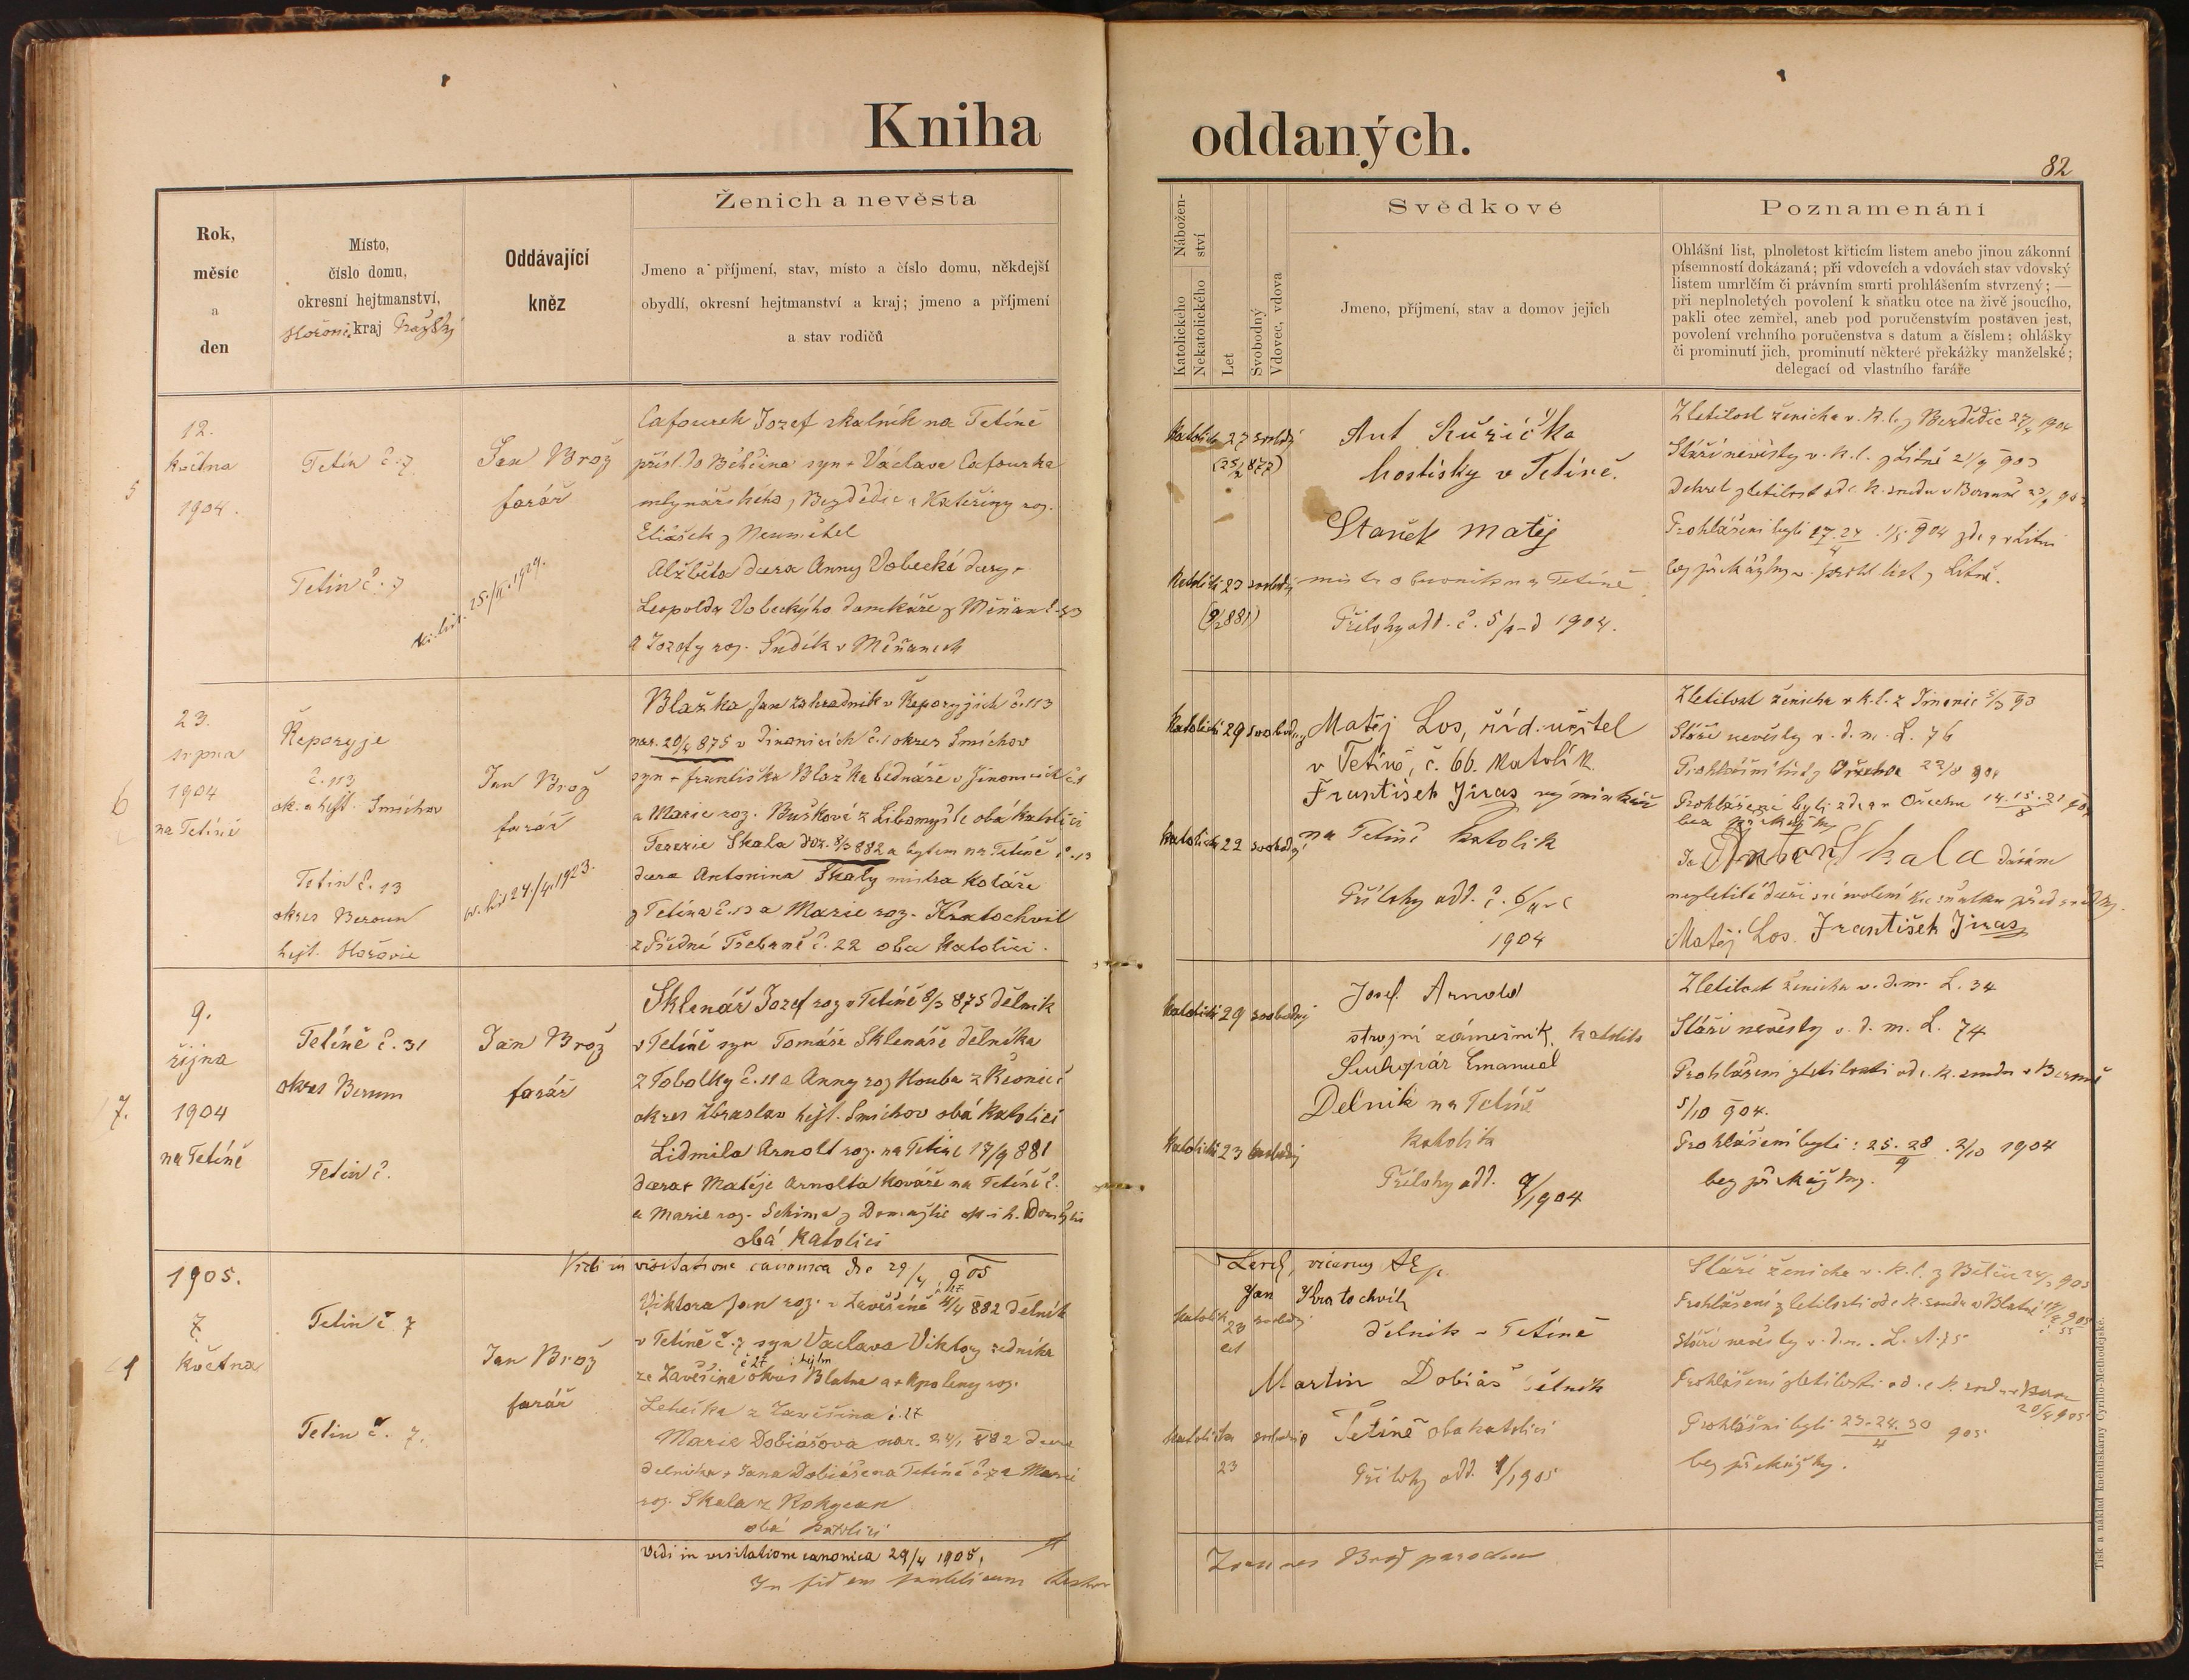 Kniha oddaných.
82
Rok,
měsíc
a
den
Místo,
číslo domu,
okresní hejtmanství,
kraj Pražský
Oddávající
kněz
Ženich a nevěsta
Jmeno a příjmení, stav, místo a číslo domu, někdejší
obydlí, okresní hejtmanství a kraj; jmeno a příjmení
a stav rodičů
Nábožen-
ství
Katolického
Nekatolického
Let
Svobodný
Vdovec, vdova
Svědkové
Jmeno, příjmení, stav a domov jejich
Poznamenání
Ohlášní list, plnoletost křticím listem anebo jinou zákonní
písemností dokázaná; při vdovcích a vdovách stav vdovský
listem umrlčím či právním smrti prohlášením stvrzený; —
při neplnoletých povolení k sňatku otce na živě jsoucího,
pakli otec zemřel, aneb pod poručenstvím postaven jest,
povolení vrchního poručenstva s datum a číslem; ohlášky
či prominutí jich, prominutí některé překážky manželské;
delegací od vlastního faráře
5
12.
května
1904.
Tetín č. 7
Tetín č. 7
Jan Brož
farář
25./II. 1929.
Cafourek Jozef skalník na Tetíně
syn + Václava Cafourka
mlynářského z Bezdědic a Kateřiny roz.
Eliášek z Neumětel
Alžběta dcera Anny Vobecké dcery
Leopolda Vobeckýho domkáře z Měňan
a Jozefy roz. v Měňanech
27
(25/2 877)
23
(9/2 881)
Ant Růžička
hostinský v Tetíně.
Staněk Matěj
na Tetíně
Přílohy odd. č. 5/a-d 1904.
Zletilost ženicha v. k. l. z Bezdědic 27/4 1904
Stáří nevěsty v. k. l. z Litně
Prohlášení byli 17. 24/4 . 1/5 904 zde a v Litni
bez překážky v. prohl. list z Litně.
6
23.
srpna
1904
na Tetíně
Řeporyje
č. 113
ok. a hejt. Smíchov
Tetín č. 13
okres Beroun
hejt. Hořovic
Jan Brož
farář
24./4. 1923.
Blažka Jan zahradník v Řeporyjích č. 113
nar. 20/4 875 v Jinonicích č. 1 okres Smíchov
syn + Františka Blažka bednáře v Jinonicích č. 1
a Marie roz. Bušková z Libomyšle obá katolíci
Terezie Skala roz. 8/3 882 a bytem na Tetíně č. 13
dcera Antonína Skaly mistra koláře
z Tetína č. 13 a Marie roz. Kratochvil
z Přední Třebaně č. 22 oba katolíci.
29
22
Matěj Los, říd. učitel
v Tetíně, č. 66. Katolík.
František Jiras výminkář
na Tetíně katolík
Přílohy odd. č. 6/a-c
1904
Zletilost ženicha v k. l. z Jinonic 5/3 90
Stáří nevěsty v. d. m. L. 76
Prohlášení byli zde a v Ořechu 14. 15. 21/8 904
bez překážky
Ja Anton Skala dávám
nezletilé dceři své svolení ku sňatku před svědky.
Matěj Los. František Jiras
7.
9.
října
1904
na Tetíně
Tetíně č. 31
okres Beroun
Tetín č.
Jan Brož
farář
Sklenář Jozef roz. v Tetíně 8/3 875 dělník
v Tetíně syn Tomáše Sklenáře dělníka
z Tobolky č. 11 a Anny roz Kouba z Řevnic
okres Zbraslav hejt. Smíchov obá katolíci
Lidmila Arnolt roz. na Tetíně 17/9 881
dcera + Matěje Arnolta kováře na Tetíně č.
a Marie roz. Schima z Domažlic
obá katolíci
29 svobodný
23
Josef Arnold
strojní zámečník, katolík
Suchopár Emanuel
Dělník na Tetíně
katolík
Přílohy odd. 7/1904
Zletilost ženicha v. d. m. L. 34
Stáří nevěsty v. d. m. L. 74
Prohlášení zletilosti od c. k. soudu v Berouně
5/10 904.
Prohlášení byli: 25. 28/9 . 2/10 1904
bez překážky.
Vidi in visitatione canonica die 29/4 905
Lerch, vicarius AEp.
1
1905.
7
května
Tetín č. 7
Tetín č. 7.
Jan Brož
farář
Viktora Jan roz. v Zavěšíně 4/4 882 dělník
v Tetíně č. 7 syn Václava Viktory zedníka
ze Zavěšína č 27 okres Blatna a + Apoleny roz.
z Zavěšína č. 27
Marie Dobiášova nar. 882 dcera
dělníka + Jana Dobiáše na Tetíně č. 7 a Marie
roz. Skala z Rokycan
obá katolíci
23
let
23
Jan Kratochvíl
dělník v Tetíně
Martin Dobiáš dělník
Tetíně oba katolíci
Přílohy odd. 1/1905
Stáří ženicha v. k. l. z Bělčic 24/2 905
Prohlášení zletilosti od c k. soudu v Blatné
Stáří nevěsty v. d. m. L. 75
Prohlášení zletilosti od c. k. soudu v Beroun
20/4 905
Prohlášní byli 23. 24. 30/4 905
bez překážky.
Vidi in visitatione canonica 29/4 1905.
In fidem
Joannes Brož parochus
Tisk a náklad knihtiskárny Cyrillo-Methodějské.